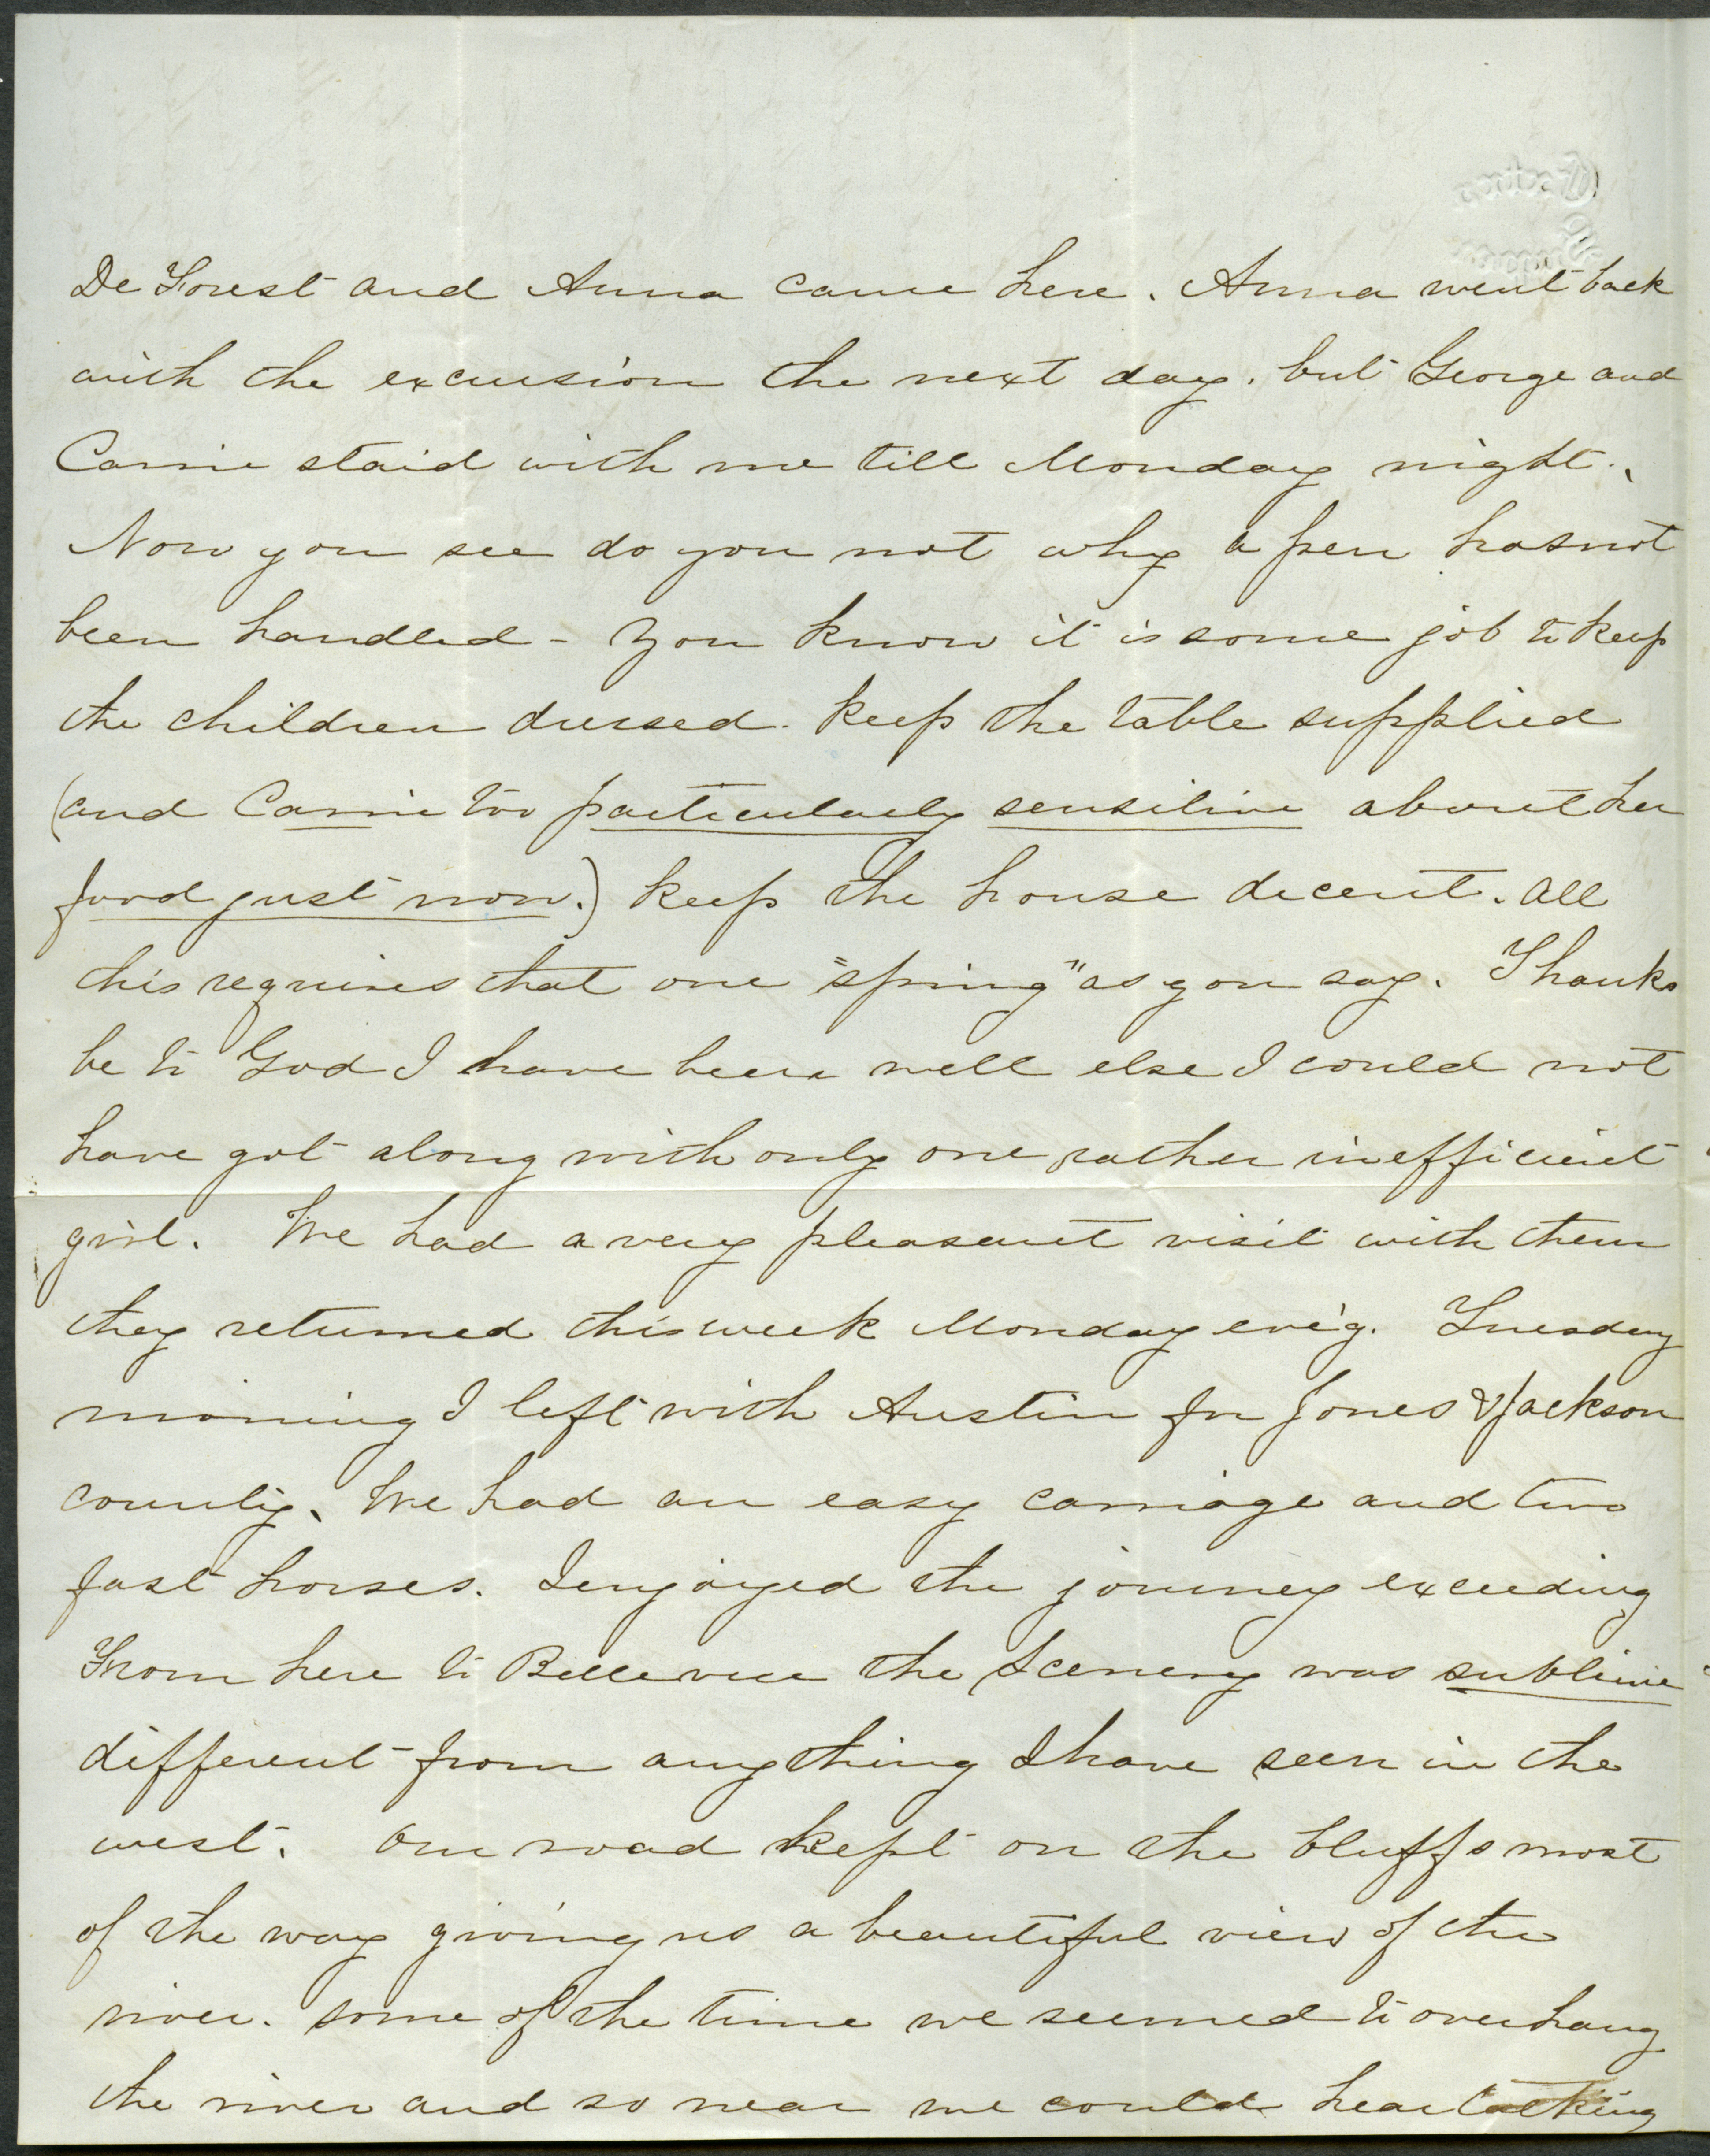 De Forest and Anna came here. Anna went back
with the excursion the next day. but George and
Carrie staid with me till Monday night.
Now you see do you not why a pen has not
been handled - You know it is some job to keep
the children dressed. keep the table supplied
(and Carrie too particularly sensitive about her
food just now.) keep the house decent. all
this requires that one "spring" as you say. Thanks
be to God I have been well else I could not
have got along with only one rather inefficient
girl. We had a very pleasant visit with them
they returned this week Monday eve'g. Tuesday
morning I left with Austin for Jones & Jackson
county. We had an easy carriage and two
fast horses. I enjoyed the journey exceeding
From here to Bellevue the Scenery was sublime
different from anything I have seen in the
west. Our road kept on the bluffs most
of the way giving us a beautiful view of the
river. some of the time we seemed to overhang
the river and so near we could hear talking